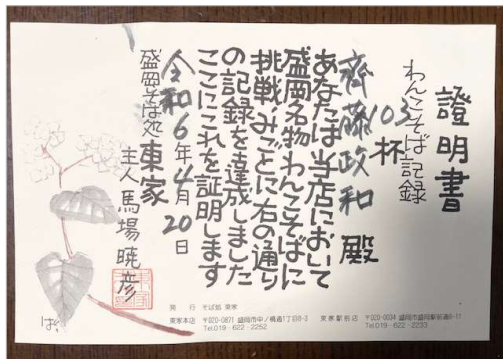 證明書
わんこそば記録
103杯
齊藤政和 殿
あなたは当店において
盛岡名物わんこそばに
挑戦みごとに右の通り
の記録を達成しました
ここにこれを証明します
令和6年4月20日
盛岡そば処 東家
主人 馬場暁彦
ば
発行 そば処 東家
東家本店 〒020-0871 盛岡市中ノ橋通1丁目8-3 Tel.019-622-2252
東家駅前店 〒020-0034 盛岡市盛岡駅前通8-11 Tel.019-622-2233